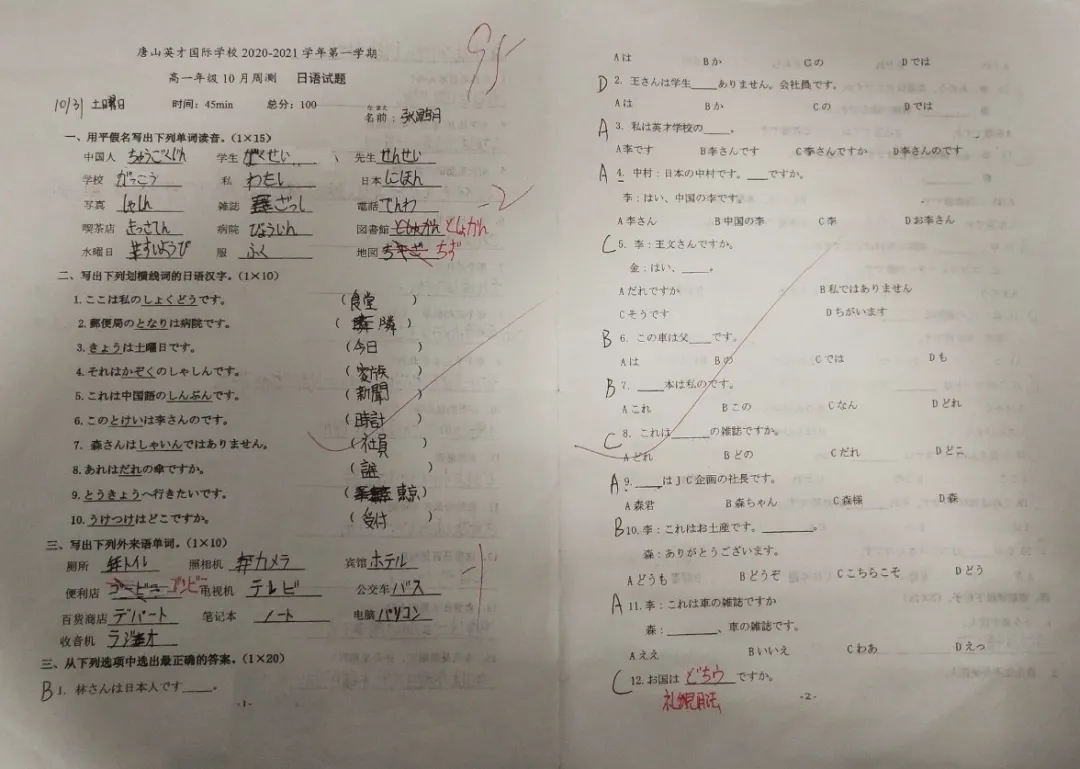 唐山英才国际学校 2020-2021 学年第一学期
高一年级 10 月周测 日语试题
95
10/31 土曜日 时间：45min 总分：100 名前：
なまえ
一、用平假名写出下列单词读音。(1×15)
中国人 ちゅうごくじん 学生 がくせい 先生 せんせい
学校 がっこう 私 わたし 日本 にほん
写真 しゃしん 雑誌 ざっし 電話 でんわ -2
喫茶店 きっさてん 病院 びょういん 図書館 としゃかん としょかん
水曜日 すいようび 服 ふく 地図 ちず
二、写出下列划横线词的日语汉字。(1×10)
1. ここは私のしょくどうです。 (食堂)
2. 郵便局のとなりは病院です。 (隣)
3. きょうは土曜日です。 (今日)
4. それはかぞくのしゃしんです。 (家族)
5. これは中国語のしんぶんです。 (新聞)
6. このとけいは李さんのです。 (時計)
7. 森さんはしゃいんではありません。 (社員)
8. あれはだれの傘ですか。 (誰)
9. とうきょうへ行きたいです。 (東京)
10. うけつけはどこですか。 (受付)
三、写出下列外来语单词。(1×10)
厕所 トイレ 照相机 カメラ 宾馆 ホテル
便利店 コンビニ 电视机 テレビ 公交车 バス -1
百货商店 デパート 笔记本 ノート 电脑 パソコン
收音机 ラジオ
三、从下列选项中选出最正确的答案。(1×20)
B 1. 林さんは日本人です____。
-1-
A は B か C の D では
D 2. 王さんは学生____ありません。会社員です。
A は B か C の D では
A 3. 私は英才学校の____。
A 李です B 李さんです C 李さんですか D 李さんのです
A 4. 中村：日本の中村です。____ですか。
李：はい、中国の李です。
A 李さん B 中国の李 C 李 D お李さん
C 5. 李：王文さんですか。
金：はい、____。
A だれですか B 私ではありません
C そうです D ちがいます
B 6. この車は父____です。
A は B の C では D も
B 7. ____本は私のです。
A これ B この C なん D どれ
C 8. これは____の雑誌ですか。
A どれ B どの C だれ D どこ
A 9. ____はＪＣ企画の社長です。
A 森君 B 森ちゃん C 森様 D 森
B 10. 李：これはお土産です。____。
森：ありがとうございます。
A どうも B どうぞ C こちらこそ D どう
A 11. 李：これは車の雑誌ですか
森：____、車の雑誌です。
A ええ B いいえ C わあ D えっ
C 12. お国はどちらですか。
-2-